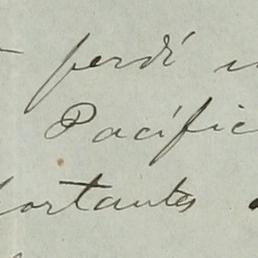 perdí
Pacific
ortantes